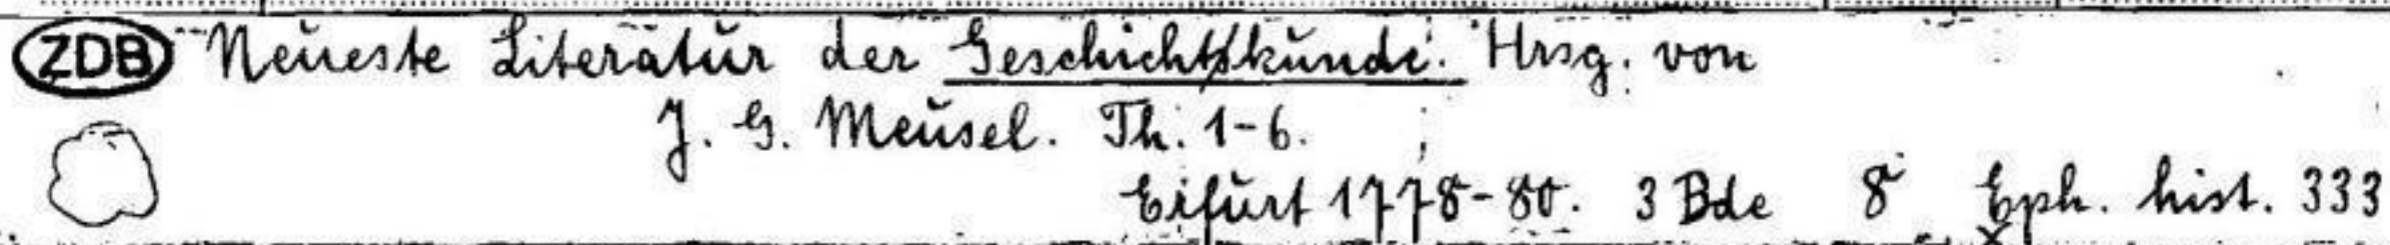 ZDB Neueste Literatur der Geschichtskunde. Hrsg. von
J. G. Meusel. Th. 1-6.
Erfurt 1778-80. 3 Bde 8° Eph. hist. 333